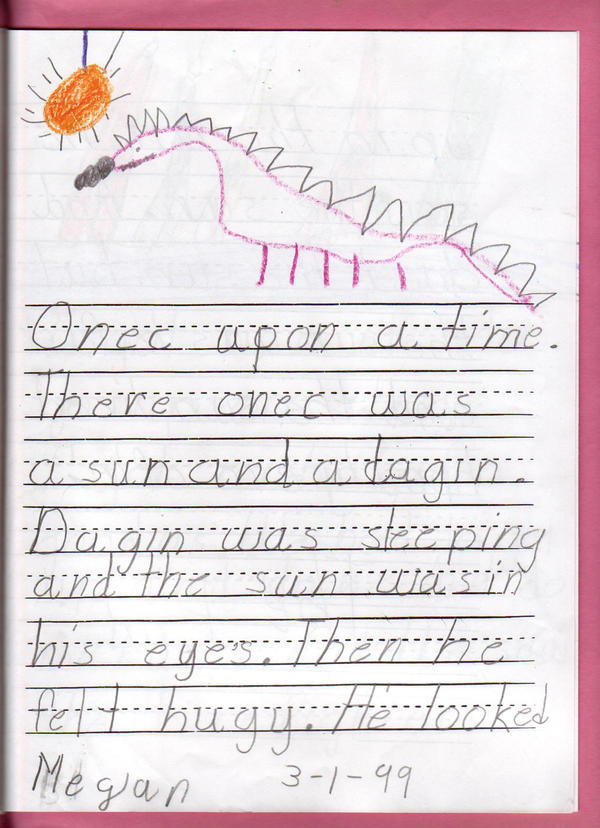 Onec upon a time.
There onec was
a sun and a dagin.
Dagin was sleeping
and the sun was in
his eye's. Then he
felt hugy. He looked
Megan 3-1-99